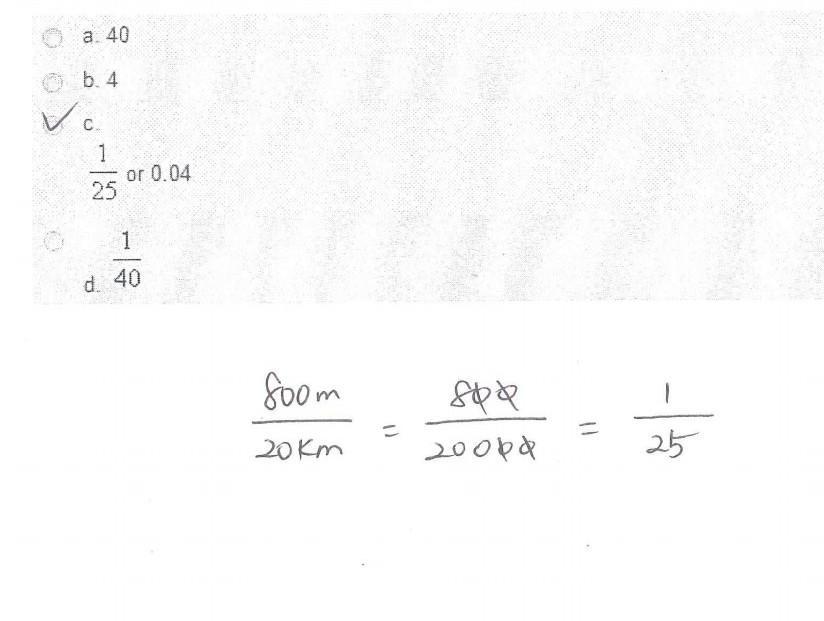 a. 40
b. 4
c.
1/25 or 0.04
d. 1/40
800m/20Km = 800/20000 = 1/25